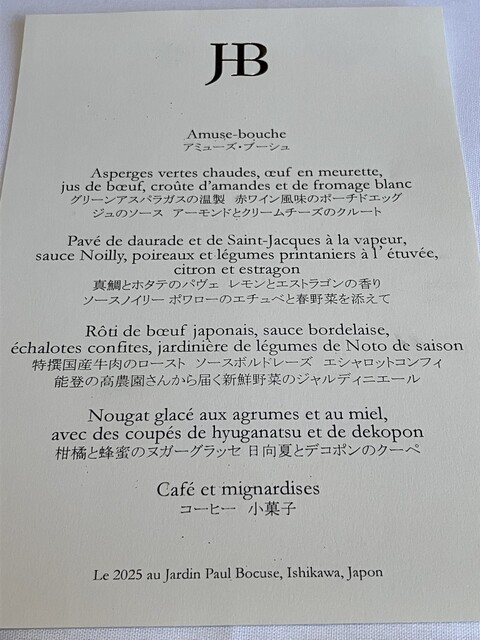 JHB
Amuse-bouche
アミューズ・ブーシュ
Asperges vertes chaudes, œuf en meurette,
jus de bœuf, croûte d'amandes et de fromage blanc
グリーンアスパラガスの温製 赤ワイン風味のポーチドエッグ
ジュのソース アーモンドとクリームチーズのクルート
Pavé de daurade et de Saint-Jacques à la vapeur,
sauce Noilly, poireaux et légumes printaniers à l'étuvée,
citron et estragon
真鯛とホタテのパヴェ レモンとエストラゴンの香り
ソースノイリー ポワローのエチュベと春野菜を添えて
Rôti de bœuf japonais, sauce bordelaise,
échalotes confites, jardinière de légumes de Noto de saison
特撰国産牛肉のロースト ソースボルドレーズ エシャロットコンフィ
能登の高農園さんから届く新鮮野菜のジャルディニエール
Nougat glacé aux agrumes et au miel,
avec des coupés de hyuganatsu et de dekopon
柑橘と蜂蜜のヌガーグラッセ 日向夏とデコポンのクーペ
Café et mignardises
コーヒー 小菓子
Le 2025 au Jardin Paul Bocuse, Ishikawa, Japon